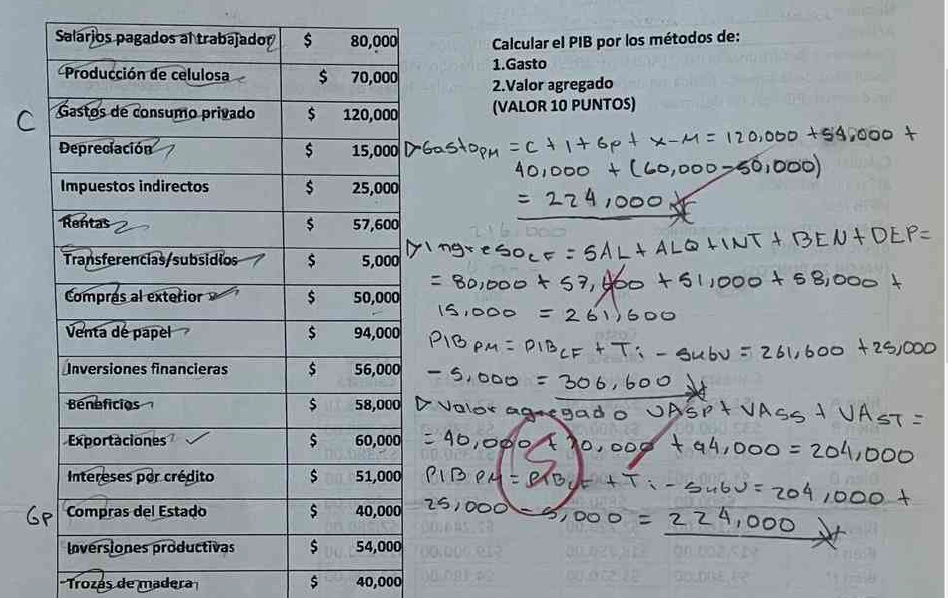 Salarios pagados al trabajador $ 80,000
Producción de celulosa $ 70,000
C Gastos de consumo privado $ 120,000
Depreciación $ 15,000
Impuestos indirectos $ 25,000
Rentas $ 57,600
Transferencias/subsidios $ 5,000
Compras al exterior $ 50,000
Venta de papel $ 94,000
Inversiones financieras $ 56,000
Beneficios $ 58,000
Exportaciones $ 60,000
Intereses por crédito $ 51,000
Gp Compras del Estado $ 40,000
Inversiones productivas $ 54,000
Trozas de madera $ 40,000
Calcular el PIB por los métodos de:
1.Gasto
2.Valor agregado
(VALOR 10 PUNTOS)
Gasto PM = C + I + Gp + X - M = 120,000 + 54,000 +
40,000 + (60,000 - 50,000)
= 224,000
Ingreso CF = SAL + ALQ + INT + BEN + DEP =
= 80,000 + 57,600 + 51,000 + 58,000 +
15,000 = 261,600
PIB PM = PIB CF + Ti - subv = 261,600 + 25,000
- 5,000 = 306,600
Valor agregado VASP + VASS + VAST =
= 40,000 + 70,000 + 94,000 = 204,000
PIB PM = PIB CF + Ti - subv = 204,000 +
25,000 - 5,000 = 224,000
5